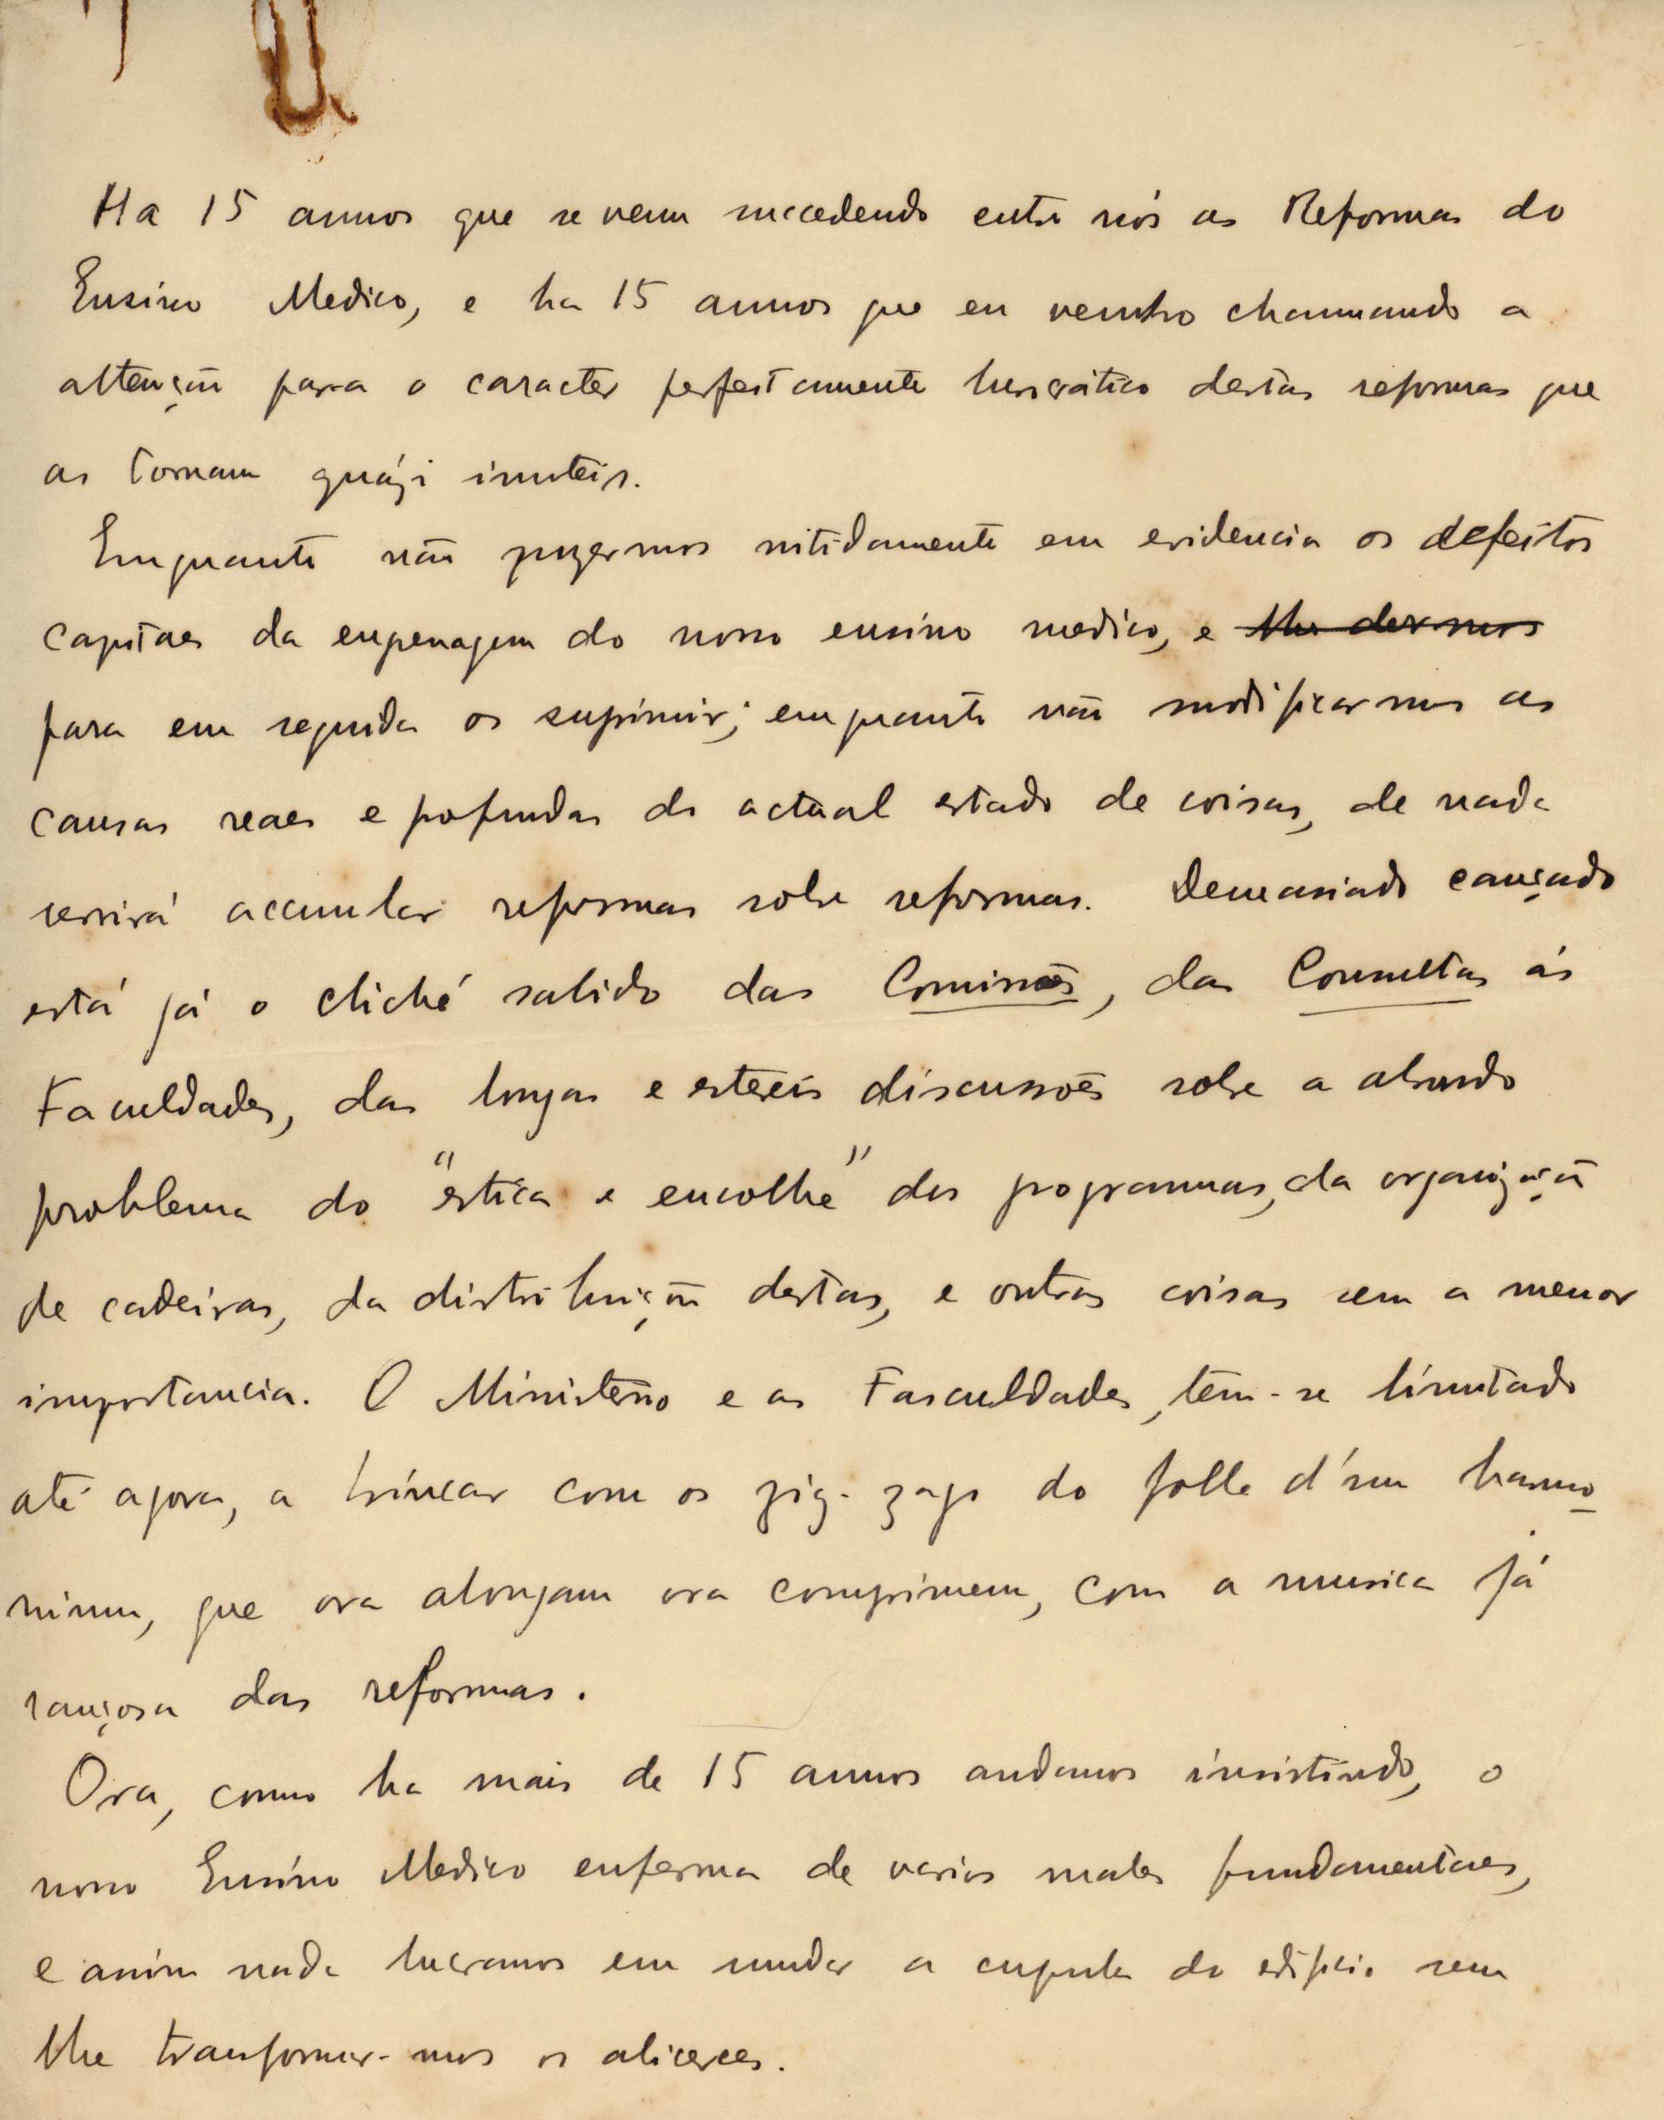 Ha 15 annos que se vem succedendo entre nós as Reformas do
Ensino Medico, e ha 15 annos que eu venho chammando a
attenção para o caracter perfeitamente burocrático destas reformas que
as tornam quázi inuteis.
Emquanto não puzermos nitidamente em evidencia os defeitos
capitaes da engrenagem do nosso ensino medico, e lhe dermos
para em seguida os suprimir; emquanto não modificarmos as
causas reaes e profundas do actual estado de coisas, de nada
servirá accumular reformas sobre reformas. Demasiado cançado
está já o cliché sahido das Comissões, das Consultas ás
Faculdades, das longas e estereis discussões sobre a absurdo
problema do "estica e encolhe" dos programmas, da organização
de cadeiras, da distribuição destas, e outras coisas sem a menor
importancia. O Ministerio e as Fasculdades, têm-se limitado
até agora, a brincar com os zig-zags do folle d'um harmo-
nium, que ora alongam ora comprimem, com a musica já
rançosa das reformas.
Ora, como ha mais de 15 annos andamos insistindo, o
nosso Ensino Medico enferma de varios males fundamentaes,
e assim nada lucramos em mudar a cupula do edificio sem
lhe transformar-mos os alicerces.